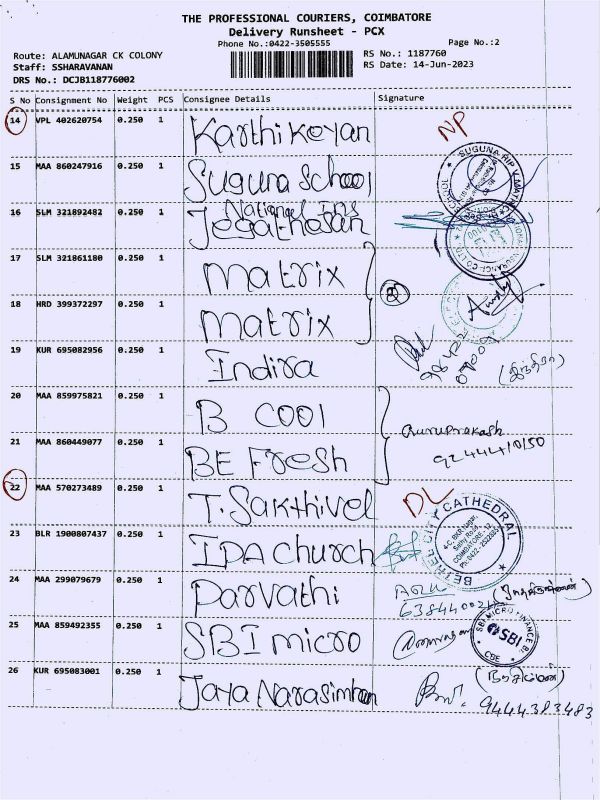 THE PROFESSIONAL COURIERS, COIMBATORE
Delivery Runsheet - PCX
Phone No.:0422-3505555
Page No.:2
Route: ALAMUNAGAR CK COLONY
RS No.: 1187760
Staff: SSHARAVANAN
RS Date: 14-Jun-2023
DRS No.: DCJB118776002
S No Consignment No Weight PCS Consignee Details Signature
14 VPL 402620754 0.250 1 Karthikeyan NP
15 MAA 860247916 0.250 1 Suguna School
16 SLM 321892482 0.250 1 National Ins
Jegathesan
17 SLM 321861180 0.250 1 Matrix
18 HRD 399372297 0.250 1 Matrix
19 KUR 695082956 0.250 1 Indira (இந்திரா)
20 MAA 859975821 0.250 1 B COOl
21 MAA 860449077 0.250 1 BE Fresh
22 MAA 570273489 0.250 1 T. Sakthivel DL
BETHEL CITY CATHEDRAL
23 BLR 1900807437 0.250 1 IPA church
24 MAA 299079679 0.250 1 Parvathi
25 MAA 859492355 0.250 1 SBI micro
SBI
CBE
26 KUR 695083001 0.250 1 Jaya Narasimhan
9444383483